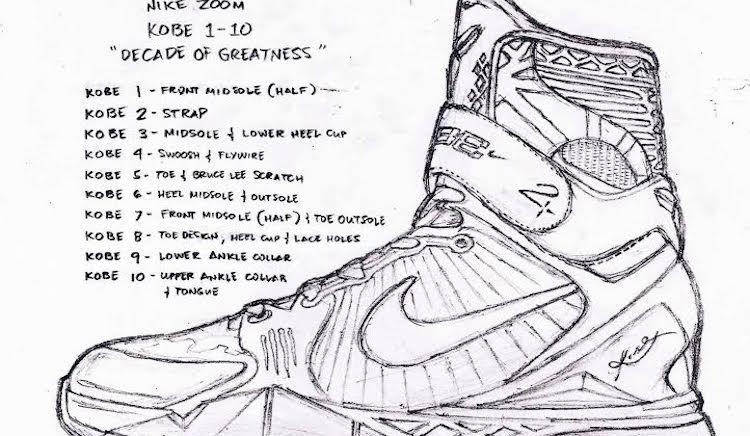 NIKE ZOOM
KOBE 1-10
"DECADE OF GREATNESS"
KOBE 1 - FRONT MIDSOLE (HALF)
KOBE 2 - STRAP
KOBE 3 - MIDSOLE & LOWER HEEL CUP
KOBE 4 - SWOOSH & FLYWIRE
KOBE 5 - TOE & BRUCE LEE SCRATCH
KOBE 6 - HEEL MIDSOLE & OUTSOLE
KOBE 7 - FRONT MIDSOLE (HALF) & TOE OUTSOLE
KOBE 8 - TOE DESIGN, HEEL CUP & LACE HOLES
KOBE 9 - LOWER ANKLE COLLAR
KOBE 10 - UPPER ANKLE COLLAR
& TONGUE